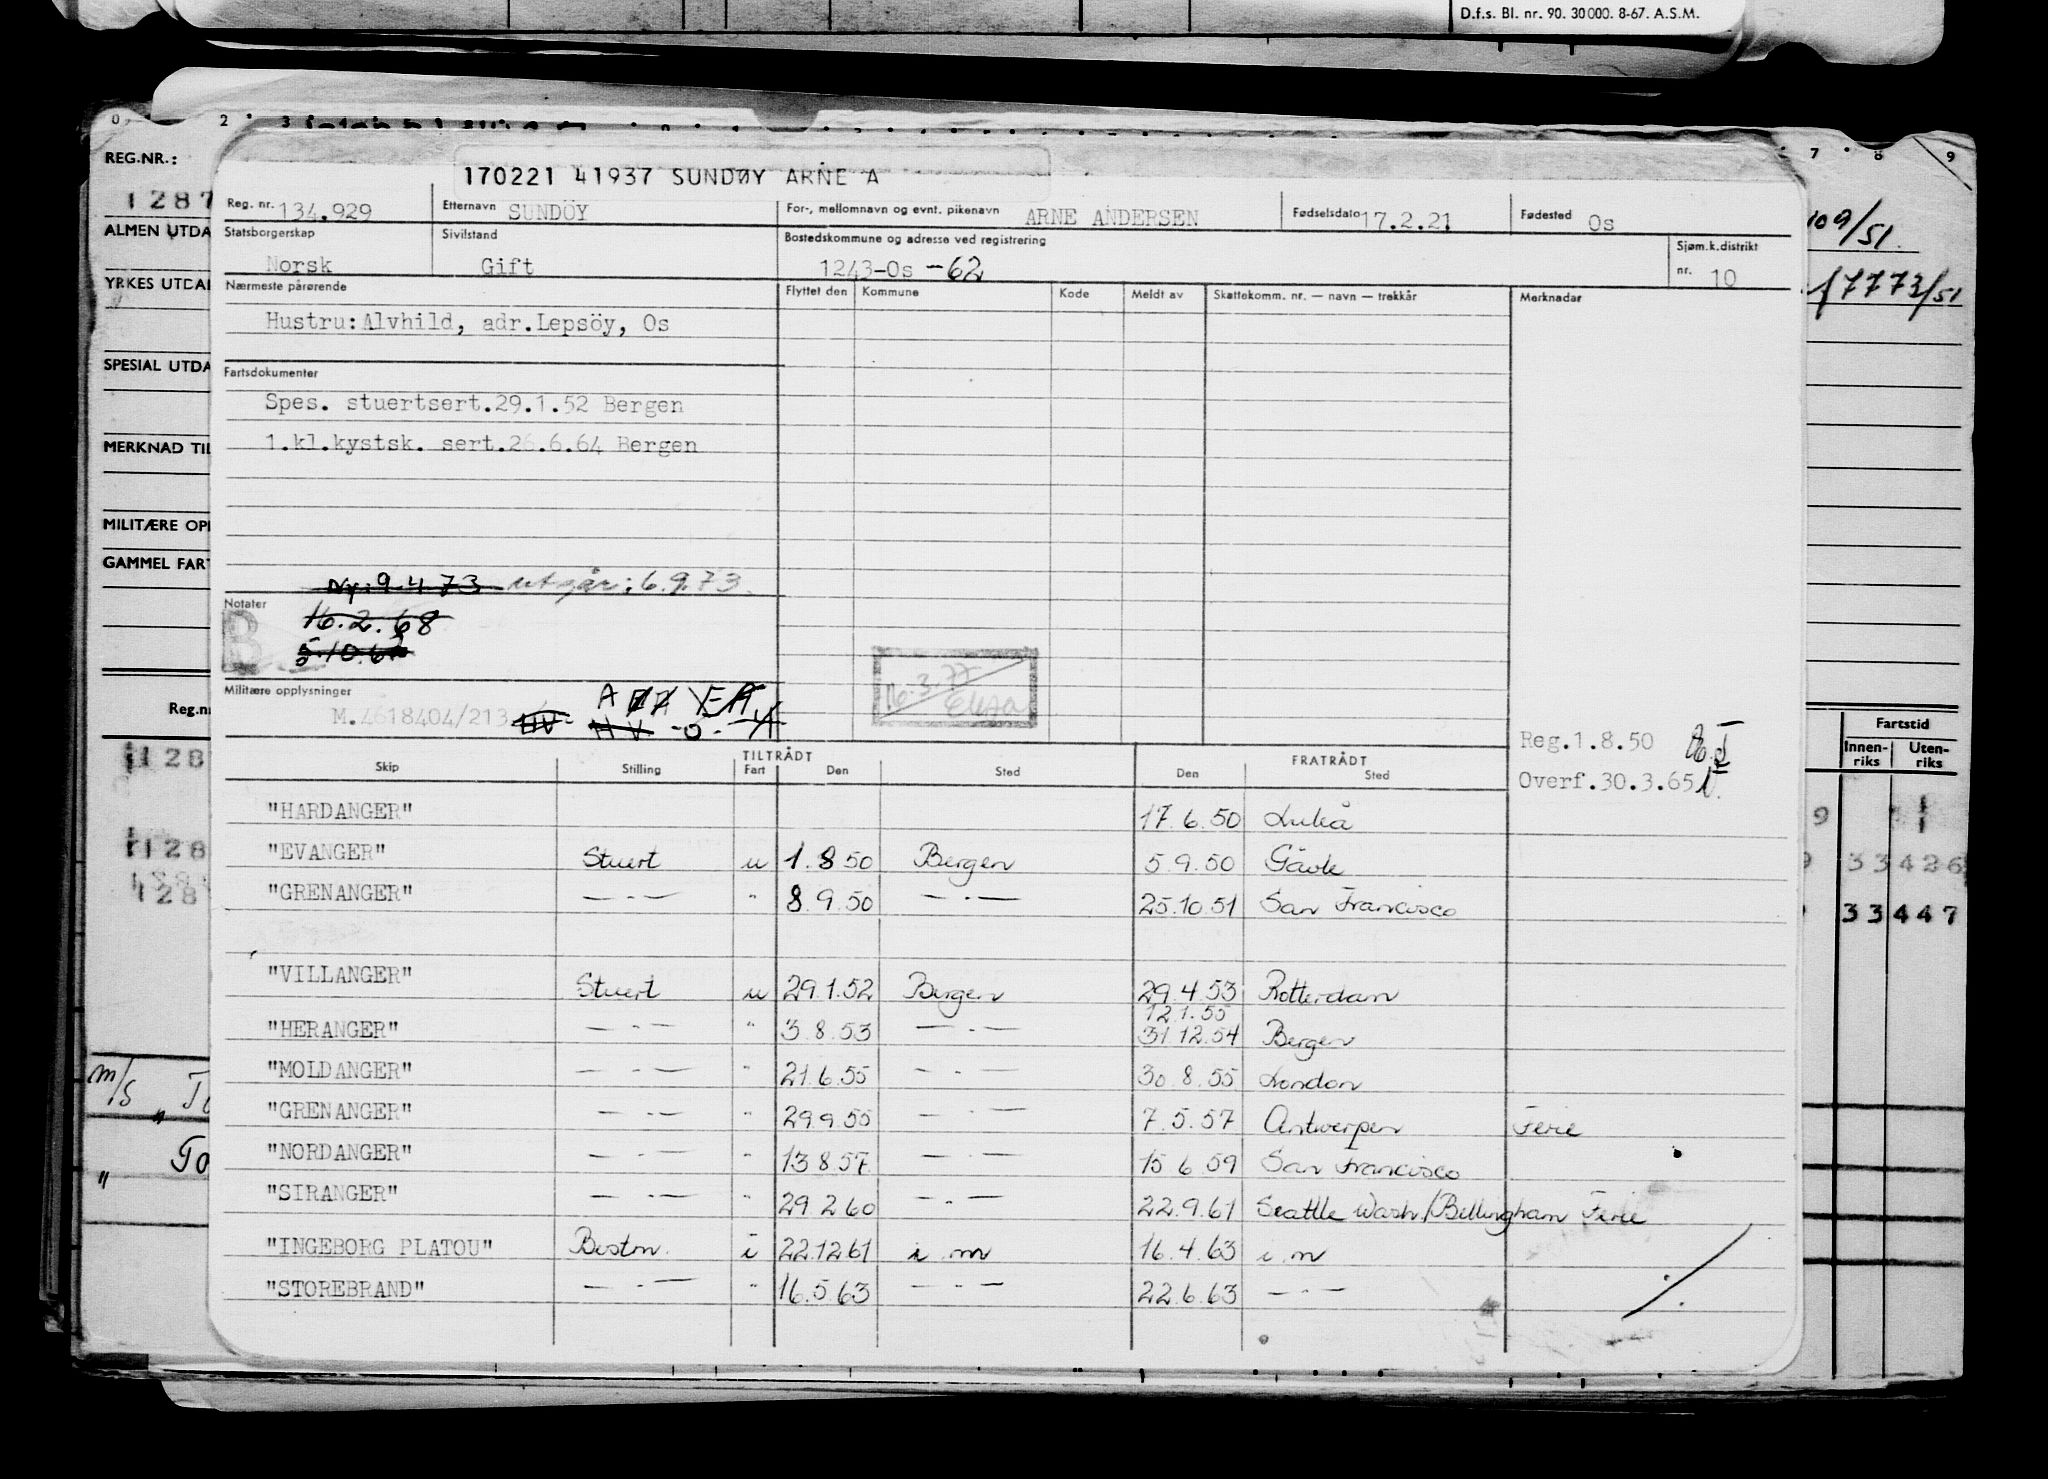 D.f.s. Bl. nr. 90. 30000. 8-67. A.S.M.
0 2 3 7 8 9
REG.NR.:
170221 41937 SUNDØY ARNE A
1287
Reg. nr. 134.929 Etternavn SUNDÖY For-, mellomnavn og evnt. pikenavn ARNE ANDERSEN Fødselsdato 17.2.21 Fødested Os
109/51
ALMEN UTDA
Statsborgerskap Norsk Sivilstand Gift Bostedskommune og adresse ved registrering 1243-Os -62 Sjøm.k.distrikt nr. 10
YRKES UTDA
7773/51
Nærmeste pårørende Flyttet den Kommune Kode Meldt av Skattekomm. nr. — navn — trekkår Merknader
Hustru: Alvhild, adr. Lepsöy, Os
SPESIAL UTDA
Fartsdokumenter
Spes. stuertsert.29.1.52 Bergen
1.kl.kystsk. sert.26.6.64 Bergen
MERKNAD TIL
MILITÆRE OPP
GAMMEL FART
Ny: 9.4.73 utgår: 6.9.73.
Notater
16.2.68
B
16.3.77
Militære opplysninger
M.4618404/213
HV HV
Reg.nr
Fartstid
Innen-riks Uten-riks
Reg.1.8.50
Overf.30.3.65
TILTRÅDT FRATRÅDT
Skip Stilling Fart Den Sted Den Sted
"HARDANGER" 17.6.50 Luleå
"EVANGER" Stuert u 1.8.50 Bergen 5.9.50 Gävle
"GRENANGER" — . — " 8.9.50 — . — 25.10.51 San Francisco
"VILLANGER" Stuert u 29.1.52 Bergen 29.4.53 Rotterdam
12.1.55
"HERANGER" — . — " 3.8.53 — . — 31.12.54 Bergen
"MOLDANGER" — . — " 21.6.55 — . — 30.8.55 London
"GRENANGER" — . — " 29.9.55 — . — 7.5.57 Antwerpen Ferie
"NORDANGER" — . — " 13.8.57 — . — 15.6.59 San Francisco
"SIRANGER" — . — " 29.2.60 — . — 22.9.61 Seattle Wash/Bellingham Ferie
"INGEBORG PLATOU" Bestm. i 22.12.61 i.m 16.4.63 i.m
"STOREBRAND" — . — " 16.5.63 — . — 22.6.63 — . —
1128
1128
128
9 1
33 426
33 447
M/S "To
" To